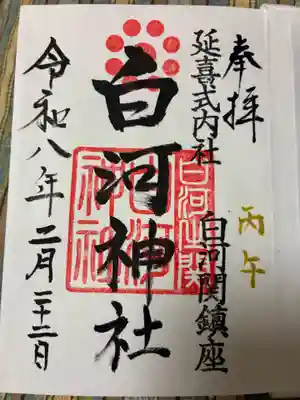 奉拝
丙午
延喜式内社
白河関鎮座
白河神社
令和八年二月二十二日
白河神社